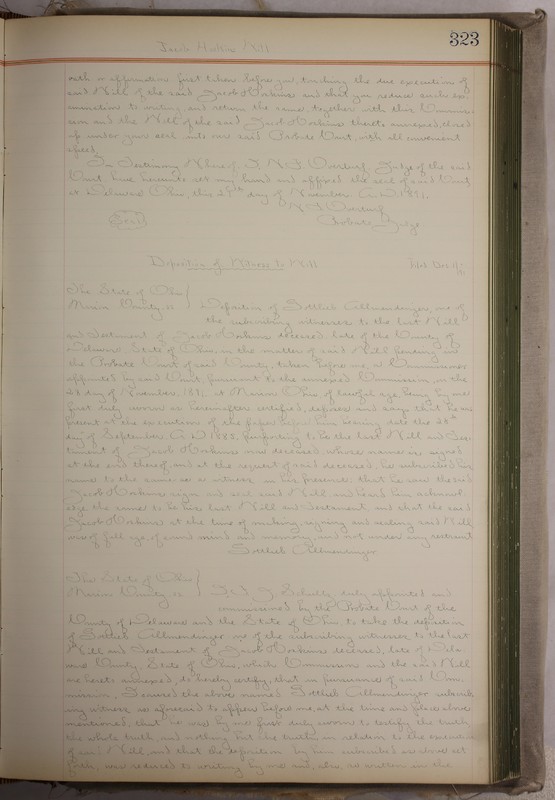 323
Jacob Hoskins Will
oath or affirmation first taken before you, touching the due execution of
said Will of the said Jacob Hoskins and that you reduce such
to writing, and return the same together with this
and the Will of the said Jacob Hoskins thereto annexed, closed
up under your seal into our said Probate Court, with all convenient
speed.
In Testimony Whereof, I, Judge of the said
Court, have hereunto set my hand and affixed the seal of said Court
at Delaware Ohio, this day of November A.D. 1891.
Seal
Probate Judge
Deposition of Witness to Will
Filed Dec
The State of Ohio
Marion County ss Deposition of Gottlieb Allmendinger, one of
the subscribing witnesses to the last Will
and Testament of Jacob Hoskins deceased, late of the County of
Delaware State of Ohio, in the matter of said Will pending in
the Probate Court of said County, taken before me, a Commissioner
appointed by said Court pursuant to the annexed Commission, on the
28 day of November, 1891, at Marion Ohio of lawful age, being by me
first duly sworn as hereinafter certified, deposes and says that he was
present at the execution of the paper before him bearing date the
day of September, A.D. 1888, purporting to be the last Will and Tes-
tament of Jacob Hoskins now deceased, whose name is signed
at the end thereof, and at the request of said deceased, he subscribed his
name to the same as a witness, in his presence; that he saw the said
Jacob Hoskins sign and seal said Will and heard him acknowl-
edge the same to be his last Will and Testament, and that the said
Jacob Hoskins at the time of making, signing and sealing said Will
was of full age, of sound mind and memory, and not under any restraint
Gottlieb Allmendinger
The State of Ohio
Marion County ss I, duly appointed and
commissioned by the Probate Court of the
County of Delaware and the State of Ohio to take the deposition
of Gottlieb Allmendinger one of the subscribing witnesses to the last
Will and Testament of Jacob Hoskins deceased, late of Dela-
ware County, State of Ohio, which Commission and the said Will
are hereto annexed, do hereby certify, that in pursuance of said Com-
mission, I caused the above named Gottlieb Allmendinger
witness as aforesaid to appear before me, at the time and place above
mentioned, that he was by me first duly sworn to testify the truth
the whole truth, and nothing but the truth, in relation to the execution
of said Will, and that the deposition by him subscribed as above set
forth, was reduced to writing by me and, also, so written in the